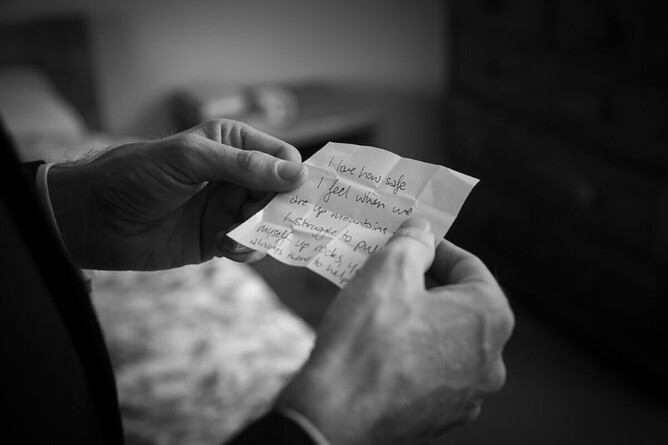 I love how safe
I feel when we
are up mountains
I struggle to pull
myself up rocks, y
always there to help